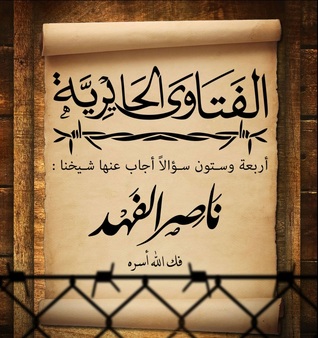 الفَتَاوَى الحَائِرِيَّة
أربعة وستون سؤالاً أجاب عنها شيخنا :
ناصر الفهد
فك الله أسره